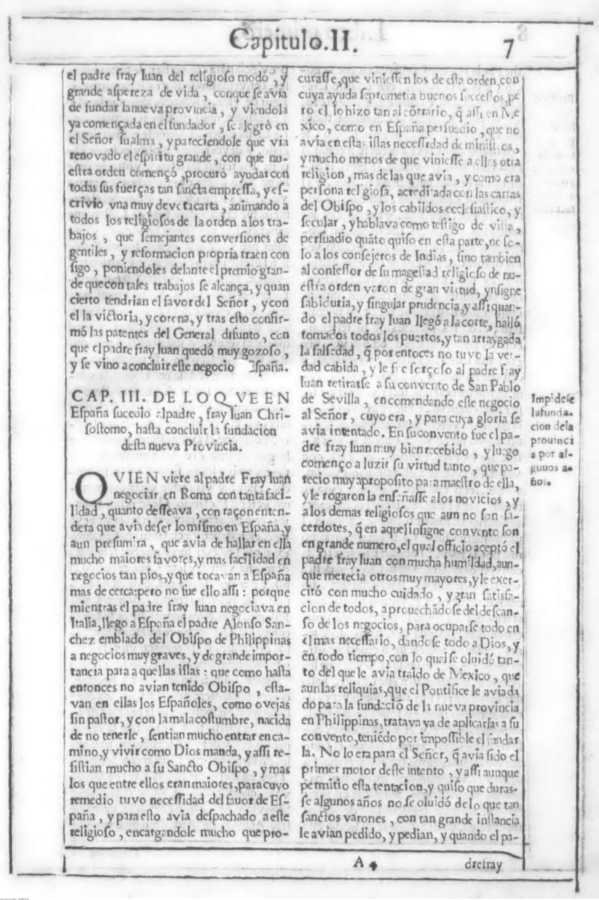 Capitulo.II.
7
el padre fray Iuan del religioso modo, y
grande aspereza de vida, conque se avia
de fundar la nueva provincia, y viendola
ya començada en el fundador, se alegrò en
el Señor su alma, y pareciendole que via
renovado el espiritu grande, con que nu-
estra orden començò, procurò ayudar con
todas sus fuerças tan sancta empressa, y es-
crivio vna muy devota carta, animando a
todos los religiosos de la orden a los tra-
bajos, que semejantes conversiones de
gentiles, y reformacion propria traen con
sigo, poniendoles delante el premio gran-
de que con tales trabajos se alcança, y quan
cierto tendrian el favor del Señor, y con
el la victoria, y corona, y tras esto confir-
mó las patentes del General difunto, con
que el padre fray Iuan quedó muy gozoso,
y se vino a concluir este negocio España.
CAP. III. DE LO QVE EN
España sucedio al padre, fray Iuan Chri-
sostomo, hasta concluir la fundacion
desta nueva Provincia.
QVIEN viere al padre Fray Iuan
negociar en Roma con tanta faci-
lidad, quanto desseava, con raçon enten-
dera que avia de ser lo mismo en España, y
aun presumira, que avia de hallar en ella
mucho maiores favores, y mas facilidad en
negocios tan pios, y que tocavan a España
mas de cerca: pero no fue ello assi: porque
mientras el padre fray Iuan negociava en
Italia, llego a España el padre Alonso San-
chez embiado del Obispo de Philippinas
a negocios muy graves, y de grande impor-
tancia para aquellas islas: que como hasta
entonces no avian tenido Obispo, esta-
van en ellas los Españoles, como ovejas
sin pastor, y con la mala costumbre, nacida
de no tenerle, sentian mucho entrar en ca-
mino, y vivir como Dios manda, y assi re-
sistian mucho a su Sancto Obispo, y mas
los que entre ellos eran maiores, para cuyo
remedio tuvo necessidad del favor de Es-
paña, y para esto avia despachado a este
religioso, encargandole mucho que pro-
curasse, que viniessen los de esta orden, con
cuya ayuda se prometia buenos successos, pe
ro el lo hizo tan al cõtrario, q̃ assi en Me
xico, como en España persuadio, que no
avia en estas islas necessidad de ministros,
y mucho menos de que viniesse a ellas otra
religion, mas de las que avia, y como era
persona religiosa, acreditada con las cartas
del Obispo, y los cabildos ecclesiastico, y
secular, y hablava como testigo de vista,
persuadio quãto quiso en esta parte, no so-
lo a los consejeros de Indias, sino tambien
al confessor de su magestad religioso de nu-
estra orden varon de gran virtud, ynsigne
sabiduria, y singular prudencia, y assi quan-
do el padre fray Iuan llegó a la corte, halló
tomados todos los puertos, y tan arraygada
la falsedad, q̃ por entonces no tuvo la ver-
dad cabida, y le fue forçoso al padre fray
Iuan retirarse a su convento de San Pablo
de Sevilla, encomendando este negocio
al Señor, cuyo era, y para cuya gloria se
avia intentado. En su convento fue el pa-
dre fray Iuan muy bien recebido, y luego
començo a luzir su virtud tanto, que pa-
recio muy aproposito para maestro de ella,
y le rogaron la enseñasse a los novicios, y
a los demas religiosos que aun no son sa-
cerdotes, q̃ en aquel insigne convento son
en grande numero, el qual officio aceptó el
padre fray Iuan con mucha humildad, aun-
que merecia otros muy mayores, y le exer-
citó con mucho cuidado, y gran satisfa-
cion de todos, aprouechãdose del descan-
so de los negocios, para ocuparse todo en
el mas necessario, dandose todo a Dios, y
en todo tiempo, con lo qual se olvidó tan-
to del que le avia traido de Mexico, que
aun las reliquias, que el Pontifice le avia da
do para la fundaciõ de la nueva provincia
en Philippinas, tratava ya de aplicarlas a su
convento, teniẽdo por impossible el fundar
la. No lo era para el Señor, q̃ avia sido el
primer motor deste intento, y assi aunque
permitio esta tentacion, y quiso que duras-
se algunos años no se olvidó de lo que tan
sanctos varones, con tan grande instancia
le avian pedido, y pedian, y quando el pa-
Impidese
la funda-
cion de la
provinci
a por al-
gunos a-
ños.
A 4
dre fray